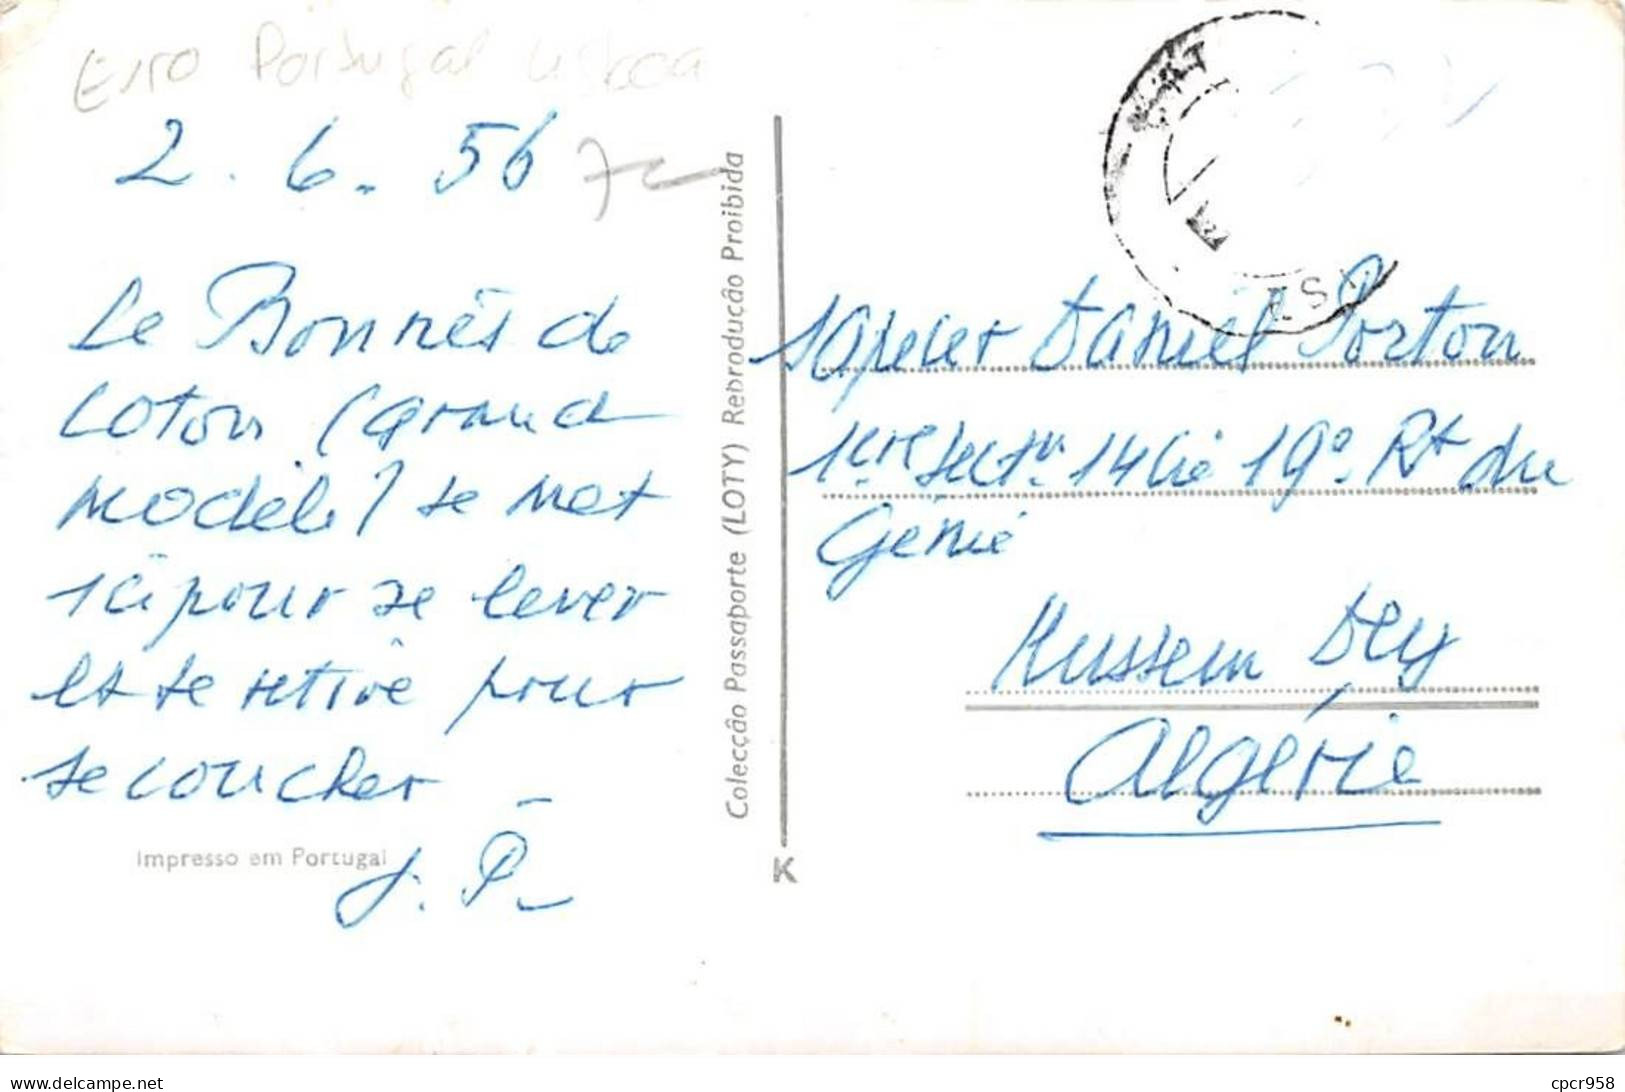 Euro Portugal Lisboa
2. 6. 56
Le Bonnet de
coton (Grand
modèle) se met
ici pour se lever
et se retire pour
se coucher
J. P.
Impresso em Portugal
Colecção Passaporte (LOTY) Reproduçâo Proibida
K
Sapeur Daniel Porton
1ère Sectn. 14 Cie 19e. Rt du
Génie
Hussein Dey
Algérie
https://www.delcampe.net
cpcr958